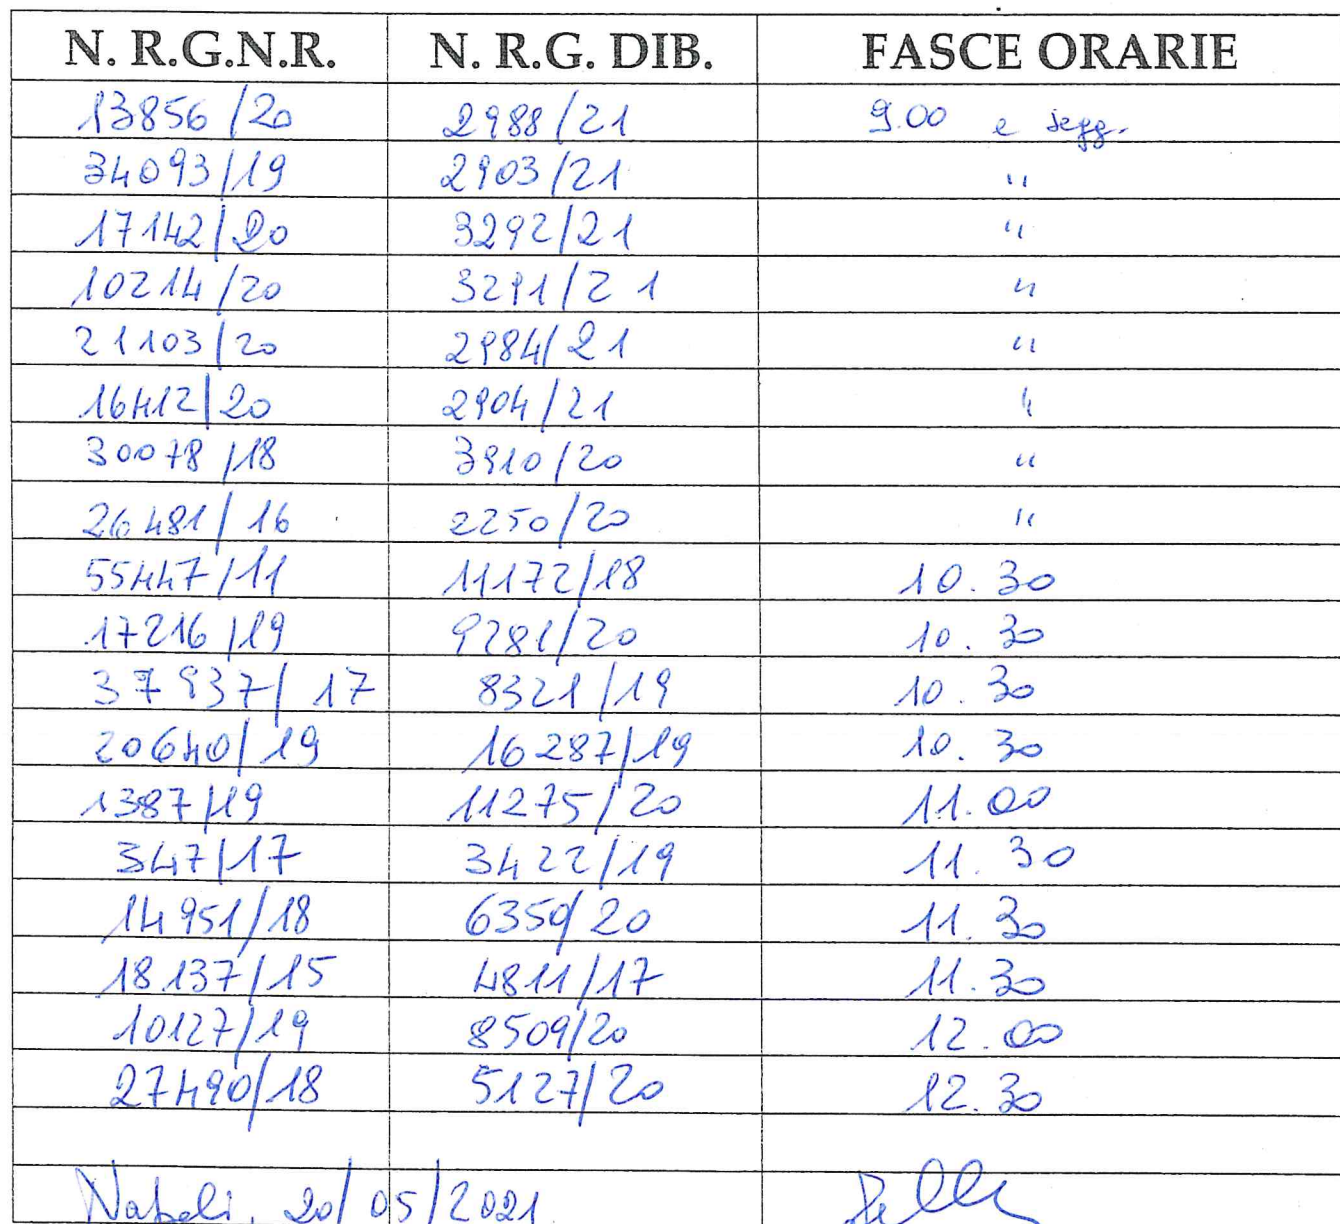 N. R.G.N.R. N. R.G. DIB. FASCE ORARIE
13856/20 2988/21 9.00 e segg.
34093/19 2903/21 "
17142/20 3292/21 "
10214/20 3291/21 "
21103/20 2984/21 "
16412/20 2904/21 "
30078/18 3910/20 "
26481/16 2250/20 "
55447/11 11172/18 10.30
17216/19 9281/20 10.30
37937/17 8321/19 10.30
20640/19 16287/19 10.30
1387/19 11275/20 11.00
347/17 3422/19 11.30
14951/18 6350/20 11.30
18137/15 4811/17 11.30
10127/19 8509/20 12.00
27490/18 5127/20 12.30
Napoli, 20/05/2021